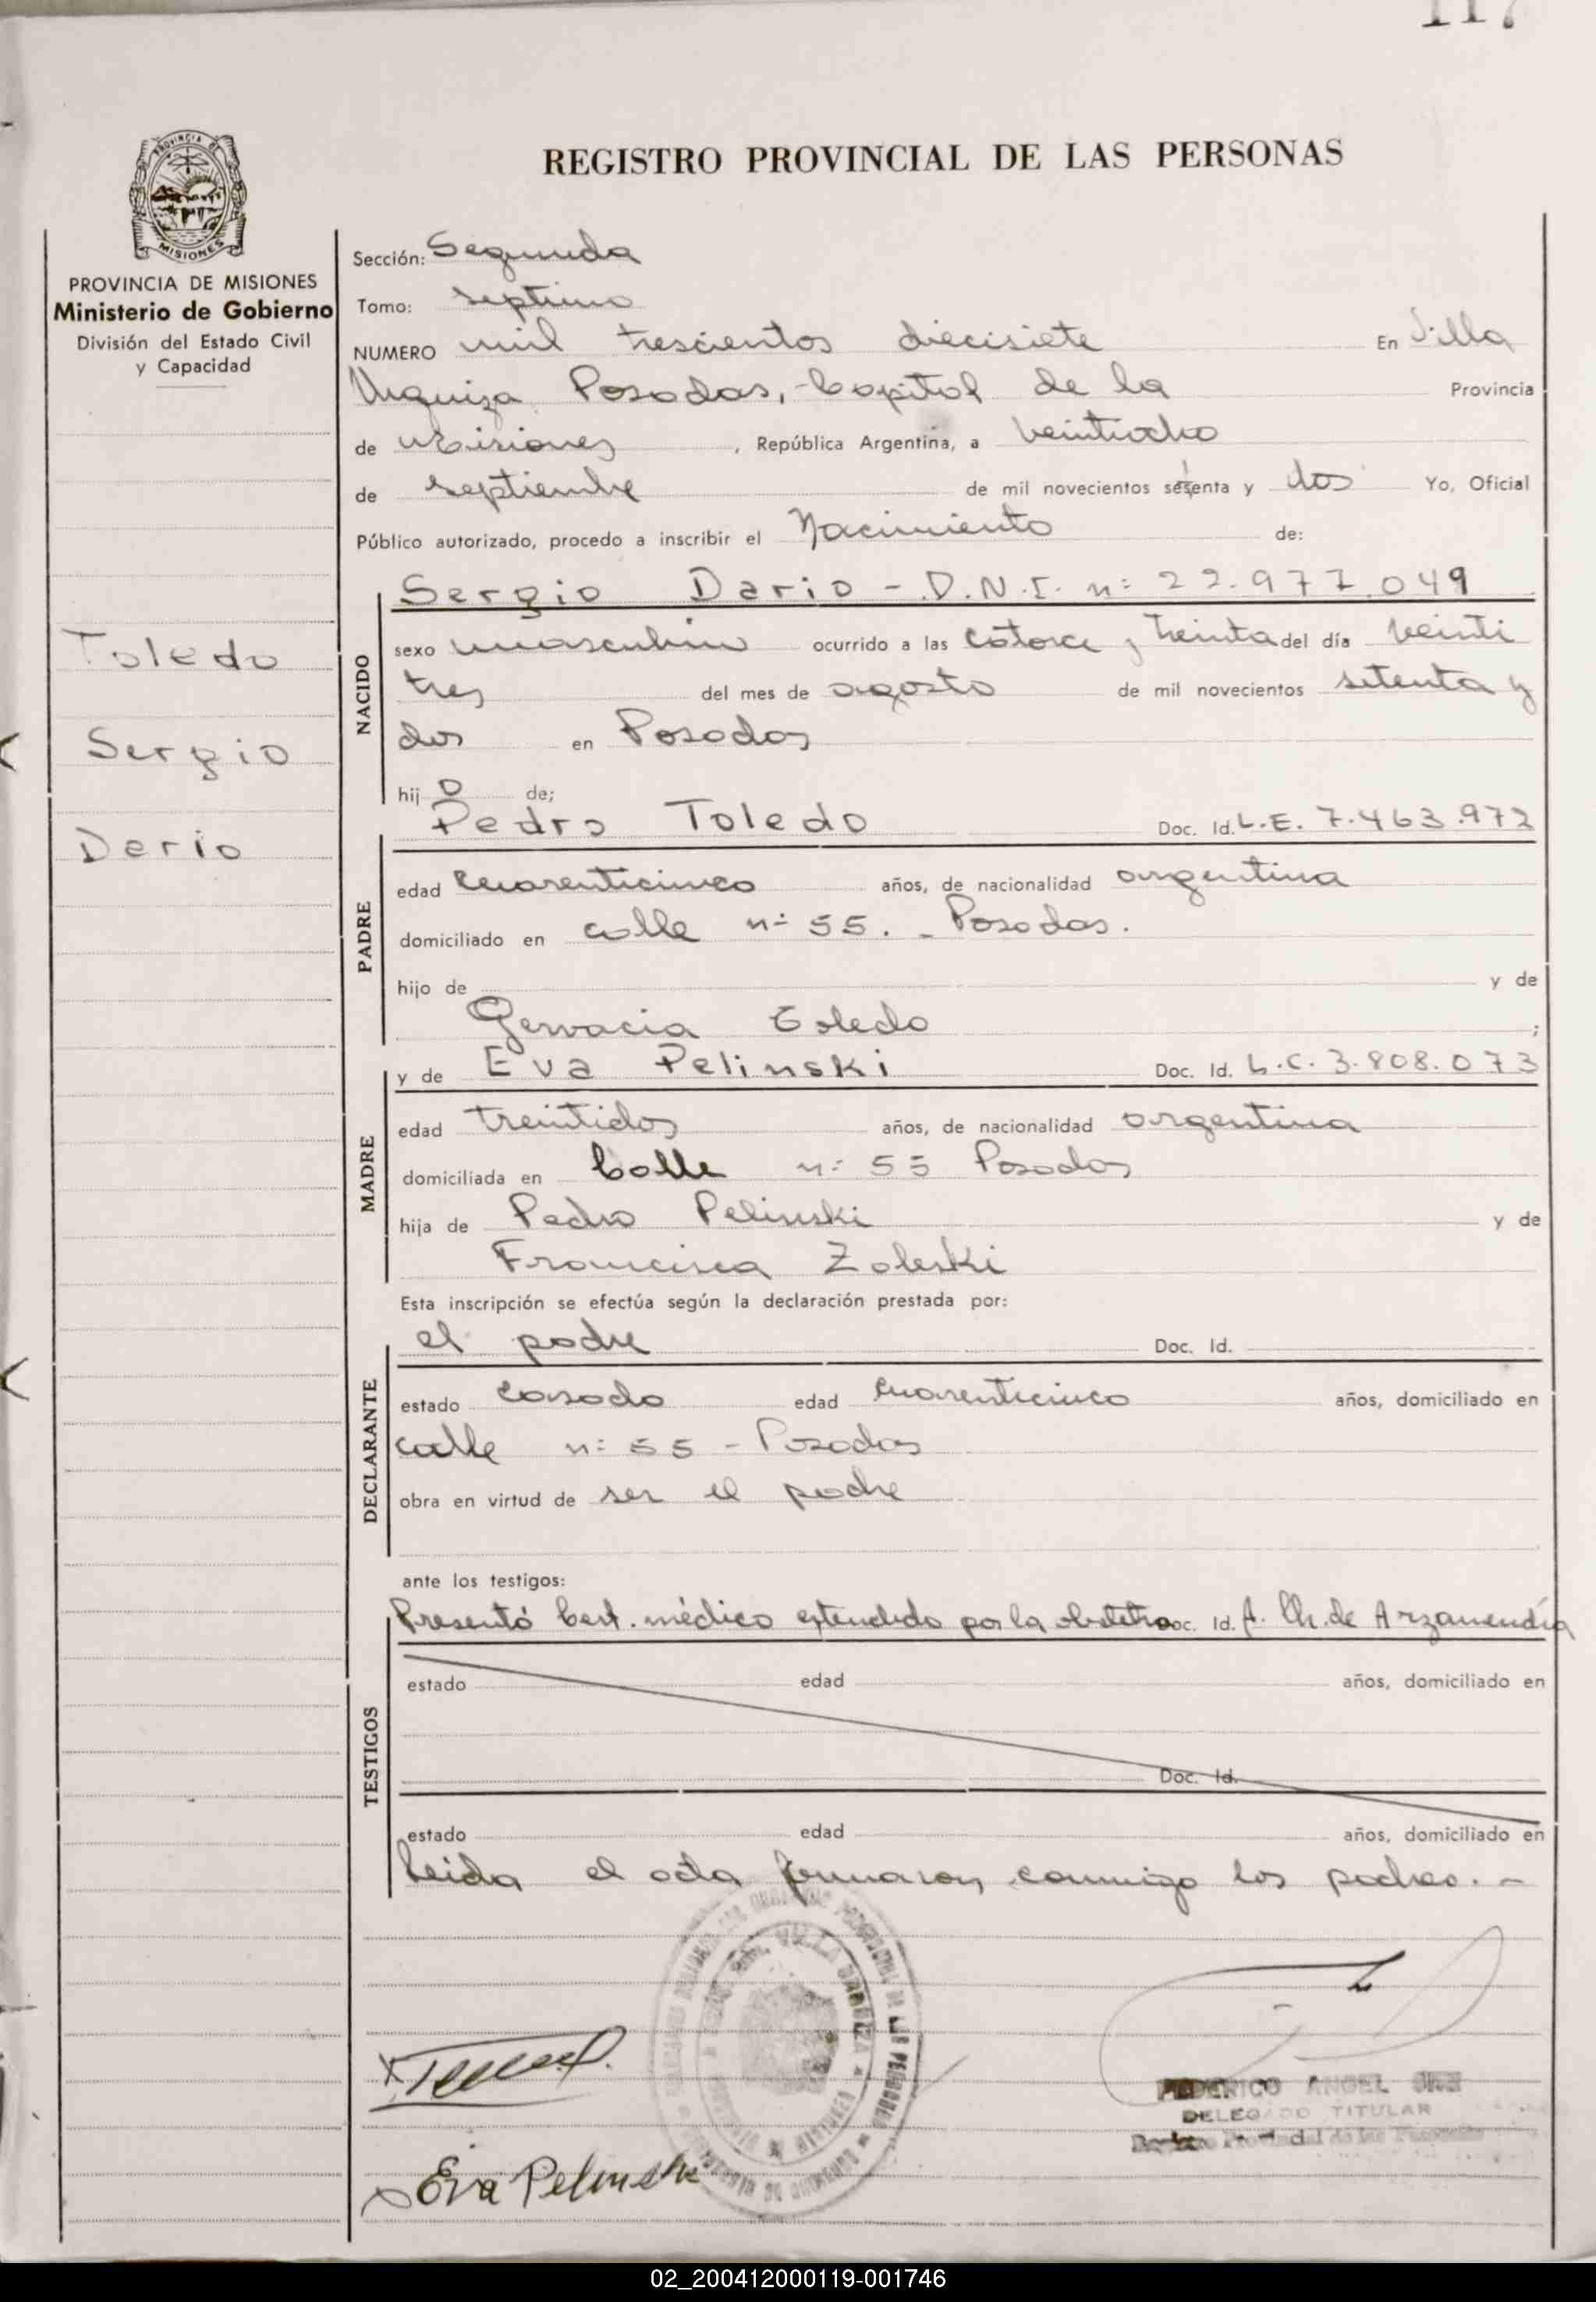 117
REGISTRO PROVINCIAL DE LAS PERSONAS
PROVINCIA DE MISIONES
MISIONES
PROVINCIA DE MISIONES
Ministerio de Gobierno
División del Estado Civil
y Capacidad
Toledo
Sergio
Dario
Sección: Segunda
Tomo: septimo
NUMERO mil trescientos diecisiete En Villa
Urquiza Posadas, Capital de la Provincia
de Misiones, República Argentina, a veintiocho
de septiembre de mil novecientos setenta y dos Yo, Oficial
Público autorizado, procedo a inscribir el Nacimiento de:
NACIDO
Sergio Dario - D.N.I. n: 22.977.049
sexo masculino ocurrido a las catorce y treinta del día veinti
tres del mes de agosto de mil novecientos setenta y
dos en Posadas
hij o de;
PADRE
Pedro Toledo Doc. Id. L.E. 7.463.972
edad cuarenticinco años, de nacionalidad argentina
domiciliado en calle n: 55. - Posadas.
hijo de y de
Gervacia Toledo ;
MADRE
y de Eva Pelinski Doc. Id. L.C. 3.808.073
edad treintidos años, de nacionalidad argentina
domiciliada en Calle n: 55 Posadas
hija de Pedro Pelinski y de
Francisca Zoleski
Esta inscripción se efectúa según la declaración prestada por:
DECLARANTE
el padre Doc. Id.
estado casado edad cuarenticinco años, domiciliado en
calle n: 55 - Posadas
obra en virtud de ser el padre
ante los testigos:
TESTIGOS
Presentó Cert. médico extendido por la obstetra Doc. Id. A. Ch. de Arzamendia
estado edad años, domiciliado en
Doc. Id.
estado edad años, domiciliado en
Leida el acta firmaron conmigo los padres. -
VILLA URQUIZA
DE LAS PERSONAS
FEDERICO ANGEL
DELEGADO TITULAR
Registro Provincial de las Personas
Eva Pelinski
02_200412000119-001746